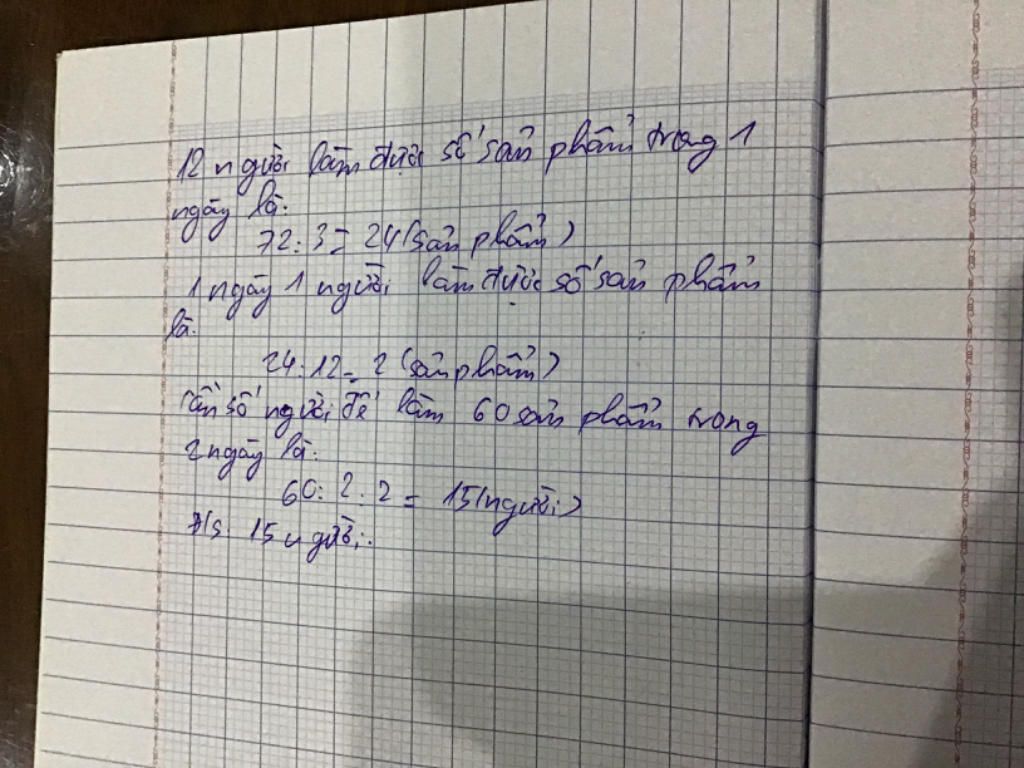 12 người làm được số sản phẩm trong 1
ngày là:
72 : 3 = 24 (sản phẩm)
1 ngày 1 người làm được số sản phẩm
là:
24 : 12 = 2 (sản phẩm)
Cần số người để làm 60 sản phẩm trong
2 ngày là:
60 : 2 : 2 = 15 (người)
Đ/s: 15 người.